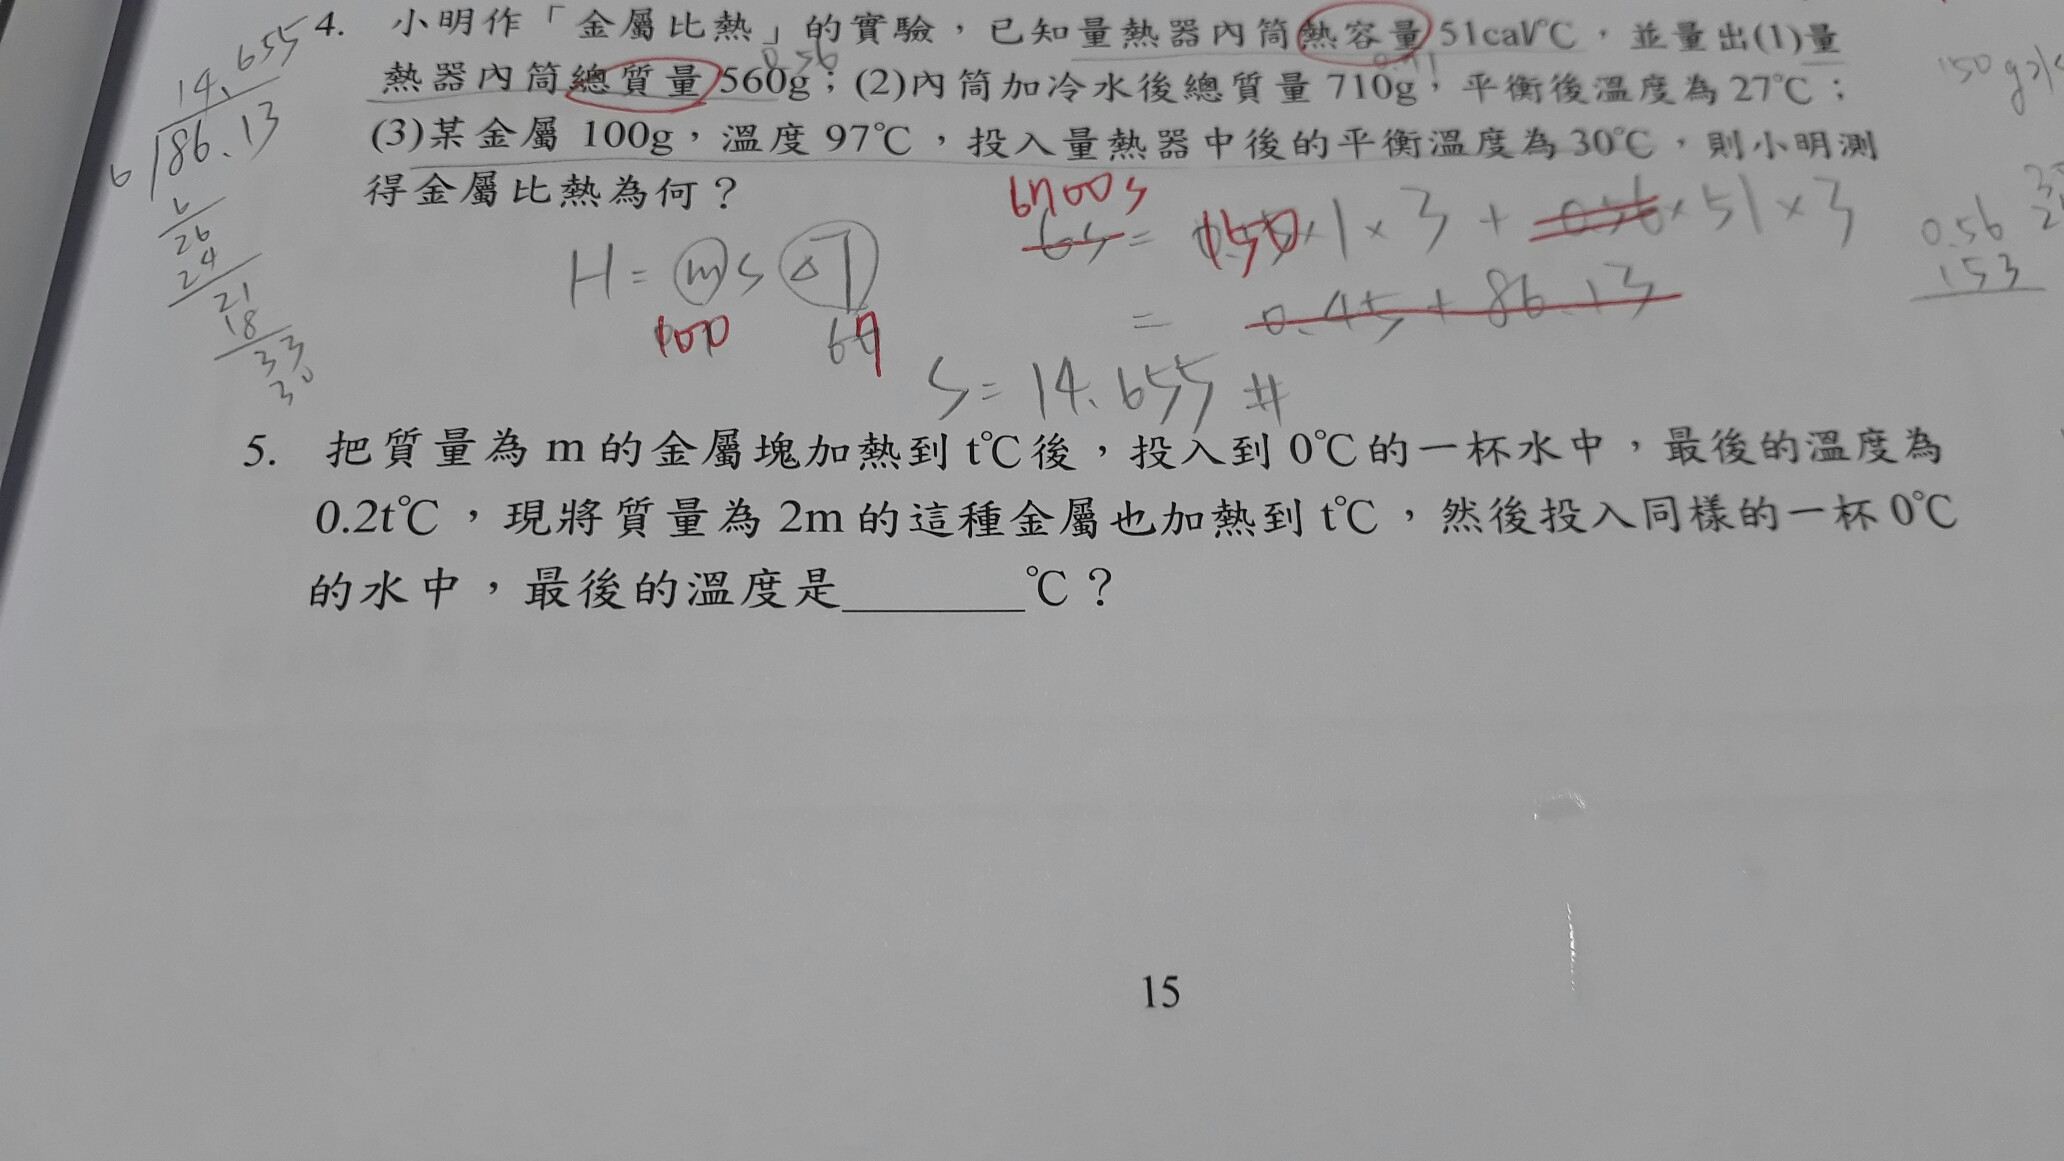 4. 小明作「金屬比熱」的實驗，已知量熱器內筒熱容量51cal/℃，並量出(1)量
熱器內筒總質量560g；(2)內筒加冷水後總質量710g，平衡後溫度為27℃；
(3)某金屬 100g，溫度 97℃，投入量熱器中後的平衡溫度為30℃，則小明測
得金屬比熱為何？
0.56
14.655
6 86.13
6
26
24
21
18
33
30
H = m s ΔT
100
67
6700s
6s = 150 × 1 × 3 + 0.56 × 51 × 3
= 0.45 + 86.13
S = 14.655 #
0.56
153
5. 把質量為 m 的金屬塊加熱到 t℃後，投入到 0℃的一杯水中，最後的溫度為
0.2t℃，現將質量為 2m 的這種金屬也加熱到 t℃，然後投入同樣的一杯 0℃
的水中，最後的溫度是________℃？
15